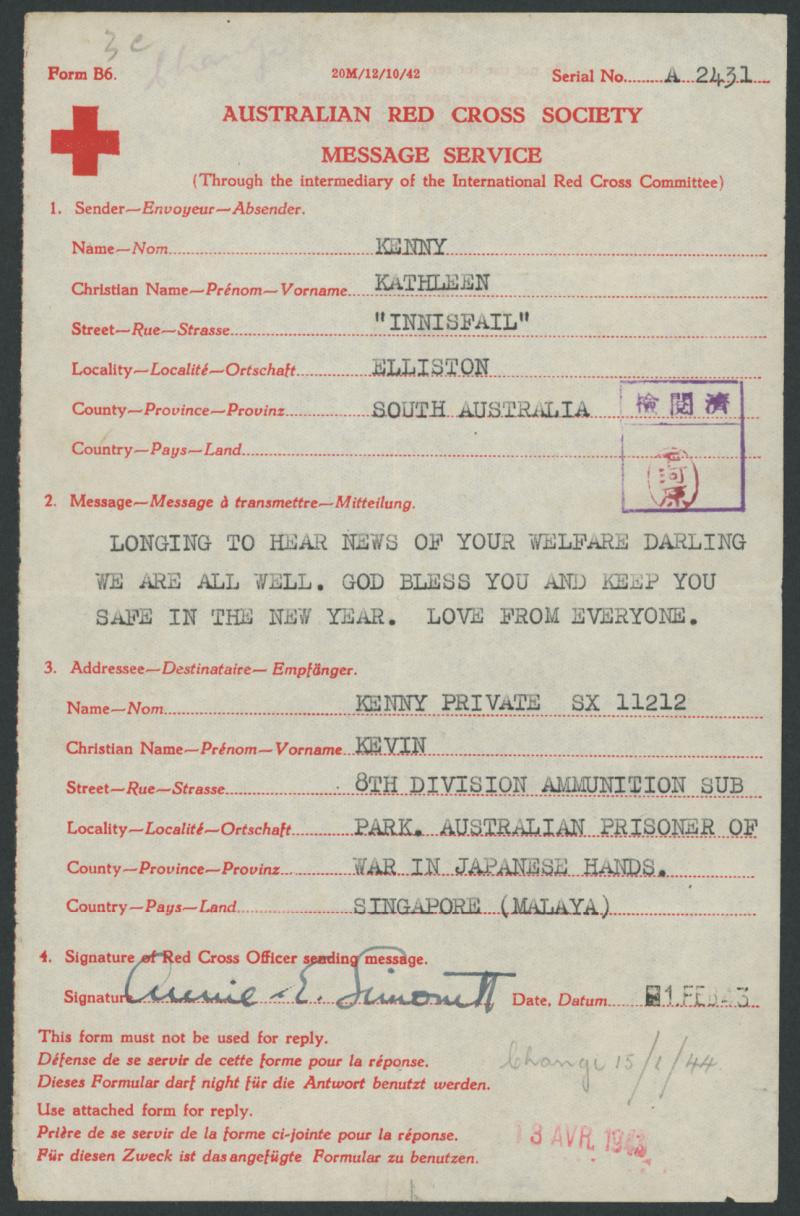 3c
Changi
Form B6.
20M/12/10/42
Serial No. A 2431
AUSTRALIAN RED CROSS SOCIETY
MESSAGE SERVICE
(Through the intermediary of the International Red Cross Committee)
1. Sender—Envoyeur—Absender.
Name—Nom KENNY
Christian Name—Prénom—Vorname KATHLEEN
Street—Rue—Strasse "INNISFAIL"
Locality—Localité—Ortschaft ELLISTON
County—Province—Provinz SOUTH AUSTRALIA
檢閲濟
Country—Pays—Land
河原
2. Message—Message à transmettre—Mitteilung.
LONGING TO HEAR NEWS OF YOUR WELFARE DARLING
WE ARE ALL WELL. GOD BLESS YOU AND KEEP YOU
SAFE IN THE NEW YEAR. LOVE FROM EVERYONE.
3. Addressee—Destinataire—Empfänger.
Name—Nom KENNY PRIVATE SX 11212
Christian Name—Prénom—Vorname KEVIN
Street—Rue—Strasse 8TH DIVISION AMMUNITION SUB
Locality—Localité—Ortschaft PARK. AUSTRALIAN PRISONER OF
County—Province—Provinz WAR IN JAPANESE HANDS.
Country—Pays—Land SINGAPORE (MALAYA)
4. Signature of Red Cross Officer sending message.
Signature Annie E. Simonett Date, Datum 1 FEB 43
This form must not be used for reply.
Défense de se servir de cette forme pour la réponse.
Changi 15/1/44.
Dieses Formular darf night für die Antwort benutzt werden.
Use attached form for reply.
Prière de se servir de la forme ci-jointe pour la réponse.
13 AVR. 1943
Für diesen Zweck ist das angefügte Formular zu benutzen.